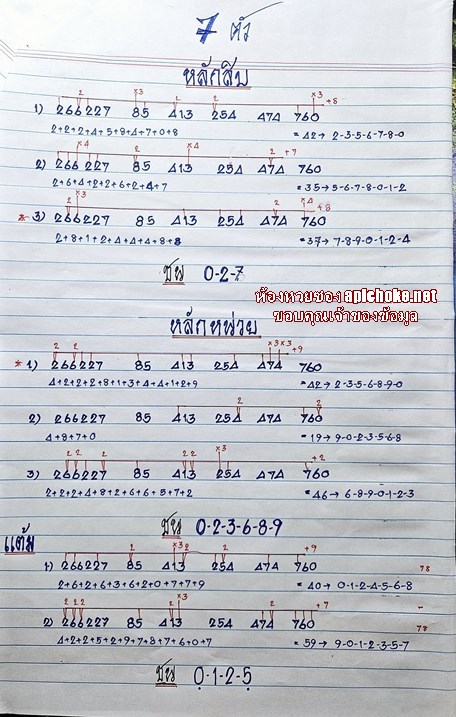 7 ตัว
หลักสิบ
2 x3 2 x3 +8
1) 266227 85 413 254 474 760
2+2+2+4+5+9+4+7+0+8 = 42 → 2-3-5-6-7-8-0
x4 x4 2 +7
2) 266227 85 413 254 474 760
2+6+4+2+2+6+2+4+7 = 35 → 5-6-7-8-0-1-2
2 x3 2 x4 +8
* 3) 266227 85 413 254 474 760
2+8+1+2+4+4+4+8+8 = 37 → 7-8-9-0-1-2-4
ชน 0-2-7
ห้องหวยซอง apichoke.net
ขอบคุณเจ้าของข้อมูล
หลักหน่วย
2 2 x3 x3 +9
* 1) 266227 85 413 254 474 760
4+2+2+2+8+1+3+4+4+1+2+9 = 42 → 2-3-5-6-8-9-0
2 2
2) 266227 85 413 254 474 760
4+8+7+0 = 19 → 9-0-2-3-5-6-8
2 2 2 2 2 x3 +2
3) 266227 85 413 254 474 760
2+2+2+4+8+2+6+6+5+7+2 = 46 → 6-8-9-0-1-2-3
ชน 0-2-3-6-8-9
แต้ม
2 x3 2 2 +9
1) 266227 85 413 254 474 760
2+6+2+6+3+6+2+0+7+7+9 = 40 → 0-1-2-4-5-6-8
2 2 2 2 x3 +7
2) 266227 85 413 254 474 760
4+2+2+5+2+9+7+8+7+6+0+7 = 59 → 9-0-1-2-3-5-7
ชน 0-1-2-5